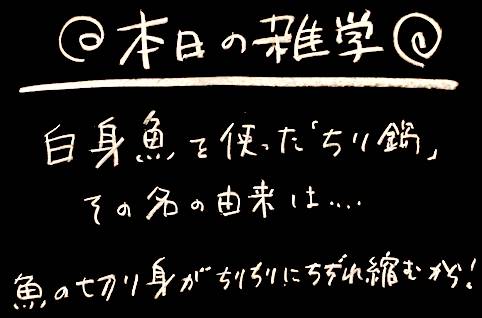 本日の雑学
白身魚を使った「ちり鍋」
その名の由来は....
魚の切り身がちりちりにちぢれ縮むから!